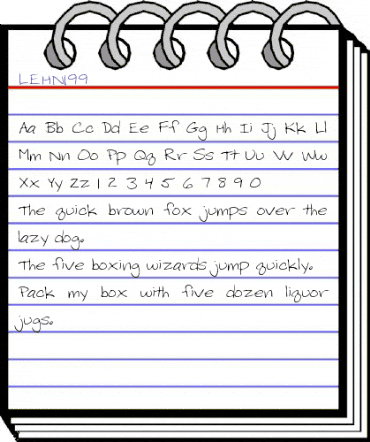 LEHN199
Aa Bb Cc Dd Ee Ff Gg Hh Ii Jj Kk Ll
Mm Nn Oo Pp Qq Rr Ss Tt Uu Vv Ww
Xx Yy Zz 1 2 3 4 5 6 7 8 9 0
The quick brown fox jumps over the
lazy dog.
The five boxing wizards jump quickly.
Pack my box with five dozen liquor
jugs.